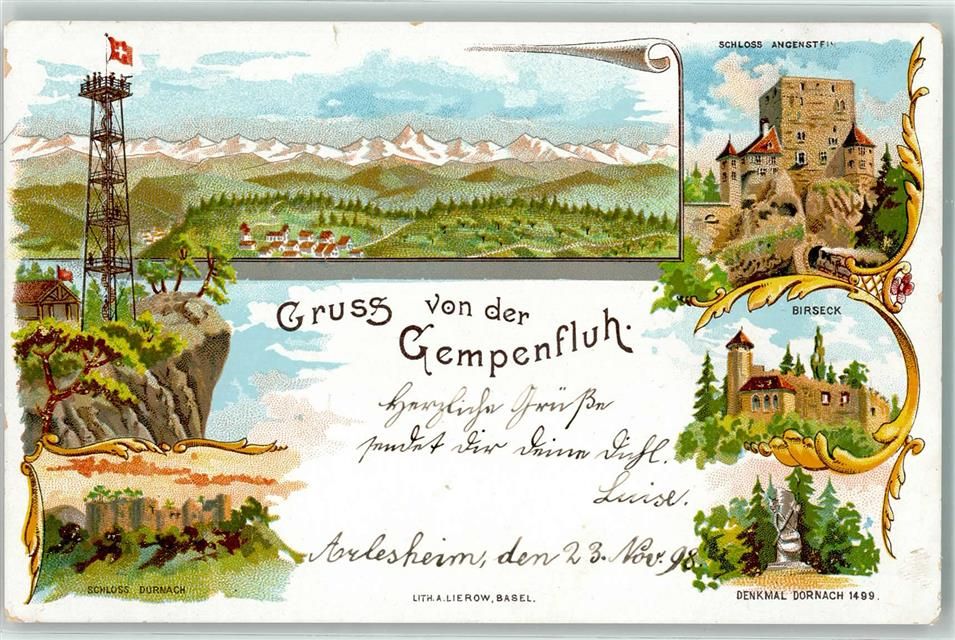 SCHLOSS ANGENSTEIN
BIRSECK
Gruss von der
Gempenfluh.
Herzliche Grüße
sendet dir deine
Luise.
Arlesheim, den 23. Nov. 98.
SCHLOSS DORNACH
LITH. A. LIEROW, BASEL.
DENKMAL DORNACH 1499.